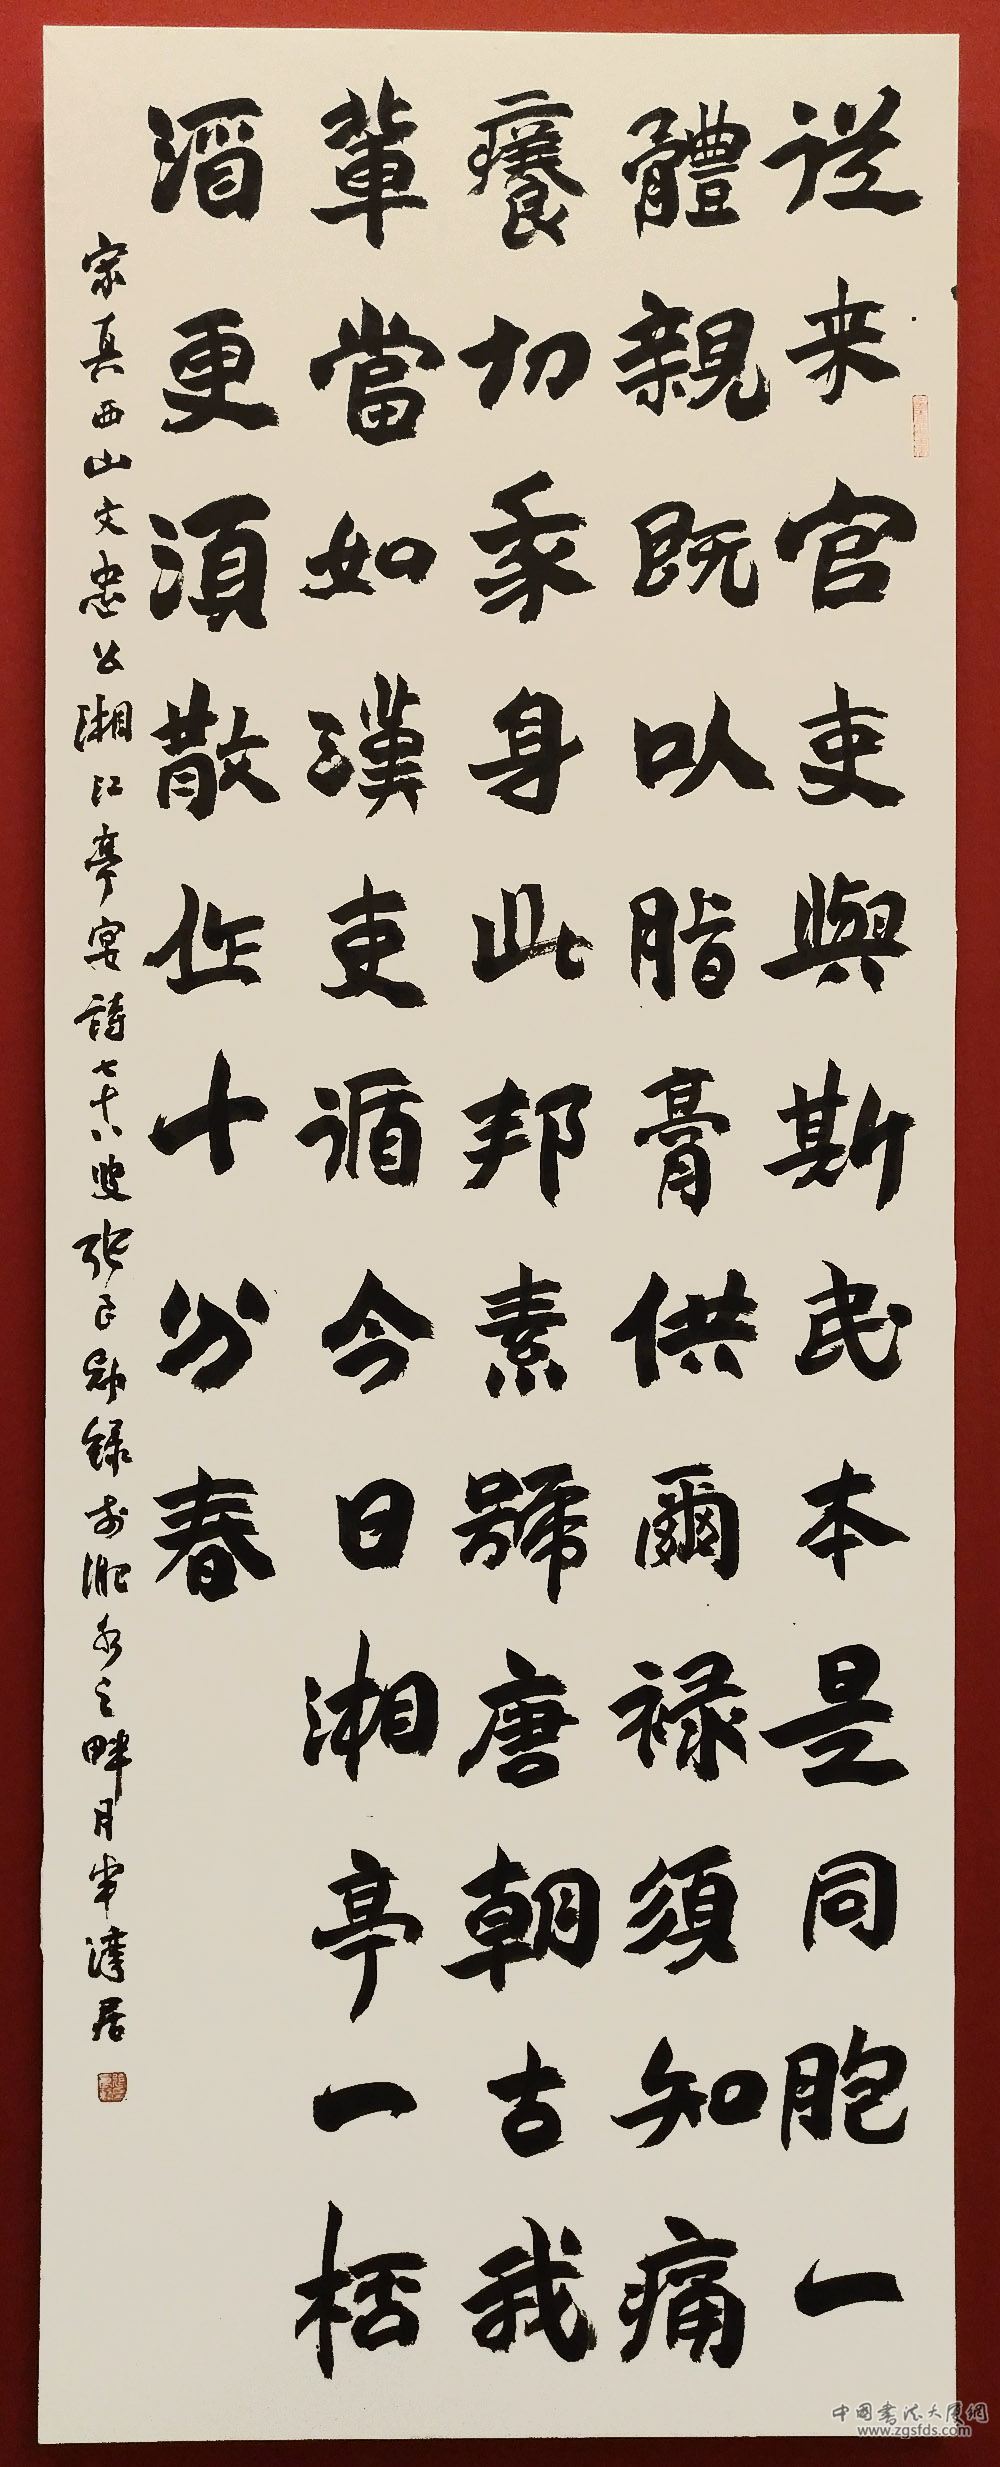 從来官吏與斯民本是同胞一
體親既以脂膏供爾禄須知痛
癢切身此邦素號唐朝古我
輩當如漢吏循今日湘亭一桮
酒更須散作十分春
宋真西山文忠公湘江亭宴詩七十八叟張良勛録於淝水之畔月牙灣居
中国书法大厦網
www.zgsfds.com